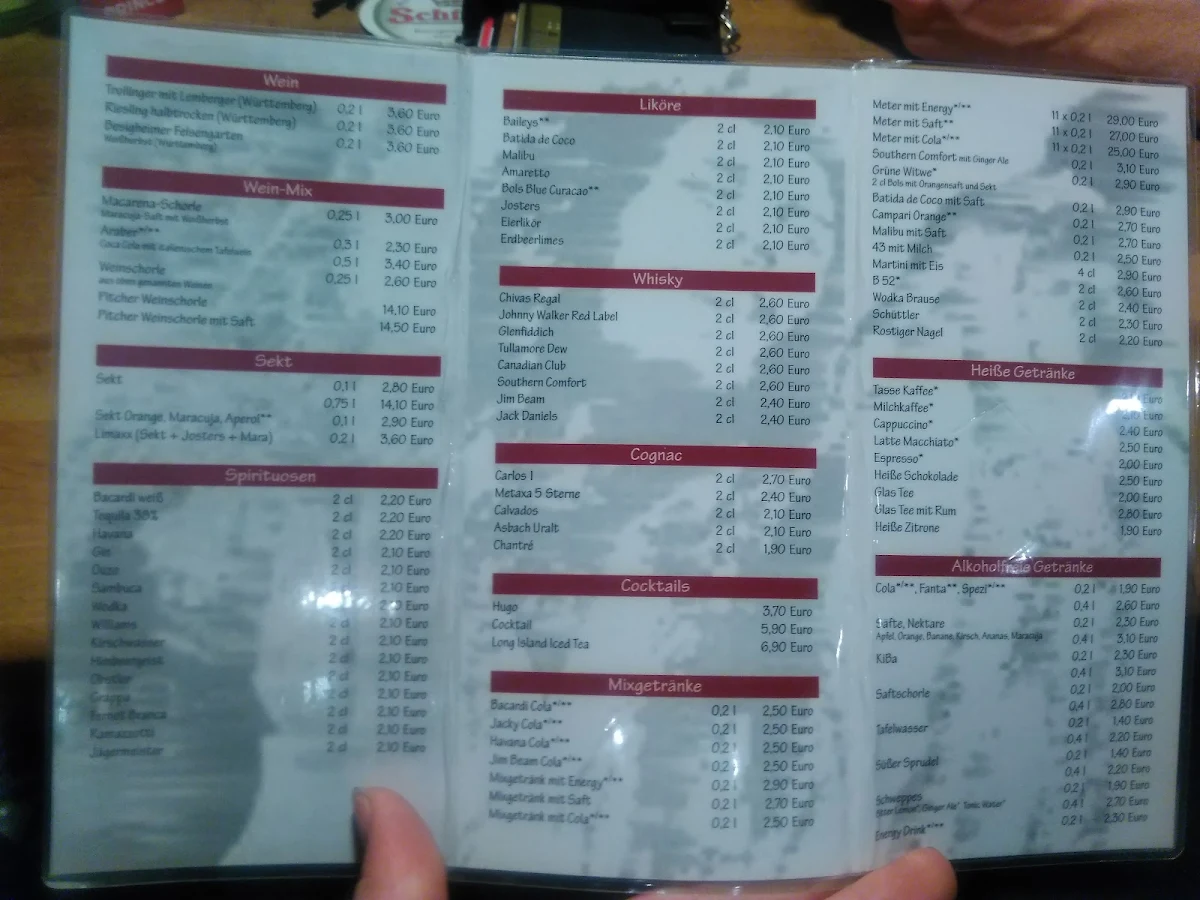 Wein
Trollinger mit Lemberger (Württemberg) 0,2 l 3,60 Euro
Riesling halbtrocken (Württemberg) 0,2 l 3,60 Euro
Besigheimer Felsengarten 0,2 l 3,60 Euro
Weißherbst (Württemberg)
Wein-Mix
Macarena-Schorle 0,25 l 3,00 Euro
Maracuja-Saft mit Weißherbst
Araber*/** 0,3 l 2,30 Euro
Coca Cola mit italienischem Tafelwein 0,5 l 3,40 Euro
Weinschorle 0,25 l 2,60 Euro
aus oben genannten Weinen
Pitcher Weinschorle 14,10 Euro
Pitcher Weinschorle mit Saft 14,50 Euro
Sekt
Sekt 0,1 l 2,80 Euro
0,75 l 14,10 Euro
Sekt Orange, Maracuja, Aperol** 0,1 l 2,90 Euro
Limaxx (Sekt + Josters + Mara) 0,2 l 3,60 Euro
Spirituosen
Bacardi weiß 2 cl 2,20 Euro
Tequila 38% 2 cl 2,20 Euro
Havana 2 cl 2,20 Euro
Gin 2 cl 2,10 Euro
Ouzo 2 cl 2,10 Euro
Sambuca 2,10 Euro
Wodka 2,10 Euro
Williams 2 cl 2,10 Euro
Kirschwasser 2 cl 2,10 Euro
Himbeergeist 2 cl 2,10 Euro
Obstler 2 cl 2,10 Euro
Grappa 2 cl 2,10 Euro
Fernet Branca 2 cl 2,10 Euro
Ramazzotti 2 cl 2,10 Euro
Jägermeister 2 cl 2,10 Euro
Liköre
Baileys** 2 cl 2,10 Euro
Batida de Coco 2 cl 2,10 Euro
Malibu 2 cl 2,10 Euro
Amaretto 2 cl 2,10 Euro
Bols Blue Curacao** 2 cl 2,10 Euro
Josters 2 cl 2,10 Euro
Eierlikör 2 cl 2,10 Euro
Erdbeerlimes 2 cl 2,10 Euro
Whisky
Chivas Regal 2 cl 2,60 Euro
Johnny Walker Red Label 2 cl 2,60 Euro
Glenfiddich 2 cl 2,60 Euro
Tullamore Dew 2 cl 2,60 Euro
Canadian Club 2 cl 2,60 Euro
Southern Comfort 2 cl 2,60 Euro
Jim Beam 2 cl 2,40 Euro
Jack Daniels 2 cl 2,40 Euro
Cognac
Carlos I 2 cl 2,70 Euro
Metaxa 5 Sterne 2 cl 2,40 Euro
Calvados 2 cl 2,10 Euro
Asbach Uralt 2 cl 2,10 Euro
Chantré 2 cl 1,90 Euro
Cocktails
Hugo 3,70 Euro
Cocktail 5,90 Euro
Long Island Iced Tea 6,90 Euro
Mixgetränke
Bacardi Cola*/** 0,2 l 2,50 Euro
Jacky Cola*/** 0,2 l 2,50 Euro
Havana Cola*/** 0,2 l 2,50 Euro
Jim Beam Cola*/** 0,2 l 2,50 Euro
Mixgetränk mit Energy*/** 0,2 l 2,90 Euro
Mixgetränk mit Saft 0,2 l 2,70 Euro
Mixgetränk mit Cola*/** 0,2 l 2,50 Euro
Meter mit Energy*/** 11 x 0,2 l 29,00 Euro
Meter mit Saft** 11 x 0,2 l 27,00 Euro
Meter mit Cola*/** 11 x 0,2 l 25,00 Euro
Southern Comfort mit Ginger Ale 0,2 l 3,10 Euro
Grüne Witwe* 0,2 l 2,90 Euro
2 cl Bols mit Orangensaft und Sekt
Batida de Coco mit Saft 0,2 l 2,90 Euro
Campari Orange** 0,2 l 2,70 Euro
Malibu mit Saft 0,2 l 2,70 Euro
43 mit Milch 0,2 l 2,50 Euro
Martini mit Eis 4 cl 2,90 Euro
B 52* 2 cl 2,60 Euro
Wodka Brause 2 cl 2,40 Euro
Schüttler 2 cl 2,30 Euro
Rostiger Nagel 2 cl 2,20 Euro
Heiße Getränke
Tasse Kaffee* Euro
Milchkaffee* Euro
Cappuccino* 2,40 Euro
Latte Macchiato* 2,50 Euro
Espresso* 2,00 Euro
Heiße Schokolade 2,50 Euro
Glas Tee 2,00 Euro
Glas Tee mit Rum 2,80 Euro
Heiße Zitrone 1,90 Euro
Alkoholfreie Getränke
Cola*/**, Fanta**, Spezi*/** 0,2 l 1,90 Euro
0,4 l 2,60 Euro
Säfte, Nektare 0,2 l 2,30 Euro
Apfel, Orange, Banane, Kirsch, Ananas, Maracuja 0,4 l 3,10 Euro
KiBa 0,2 l 2,30 Euro
0,4 l 3,10 Euro
Saftschorle 0,2 l 2,00 Euro
0,4 l 2,80 Euro
Tafelwasser 0,2 l 1,40 Euro
0,4 l 2,20 Euro
Süßer Sprudel 0,2 l 1,40 Euro
0,4 l 2,20 Euro
Schweppes 0,2 l 1,90 Euro
(Bitter Lemon*/Ginger Ale* Tonic Water* 0,4 l 2,70 Euro
Energy Drink*/** 0,2 l 2,30 Euro